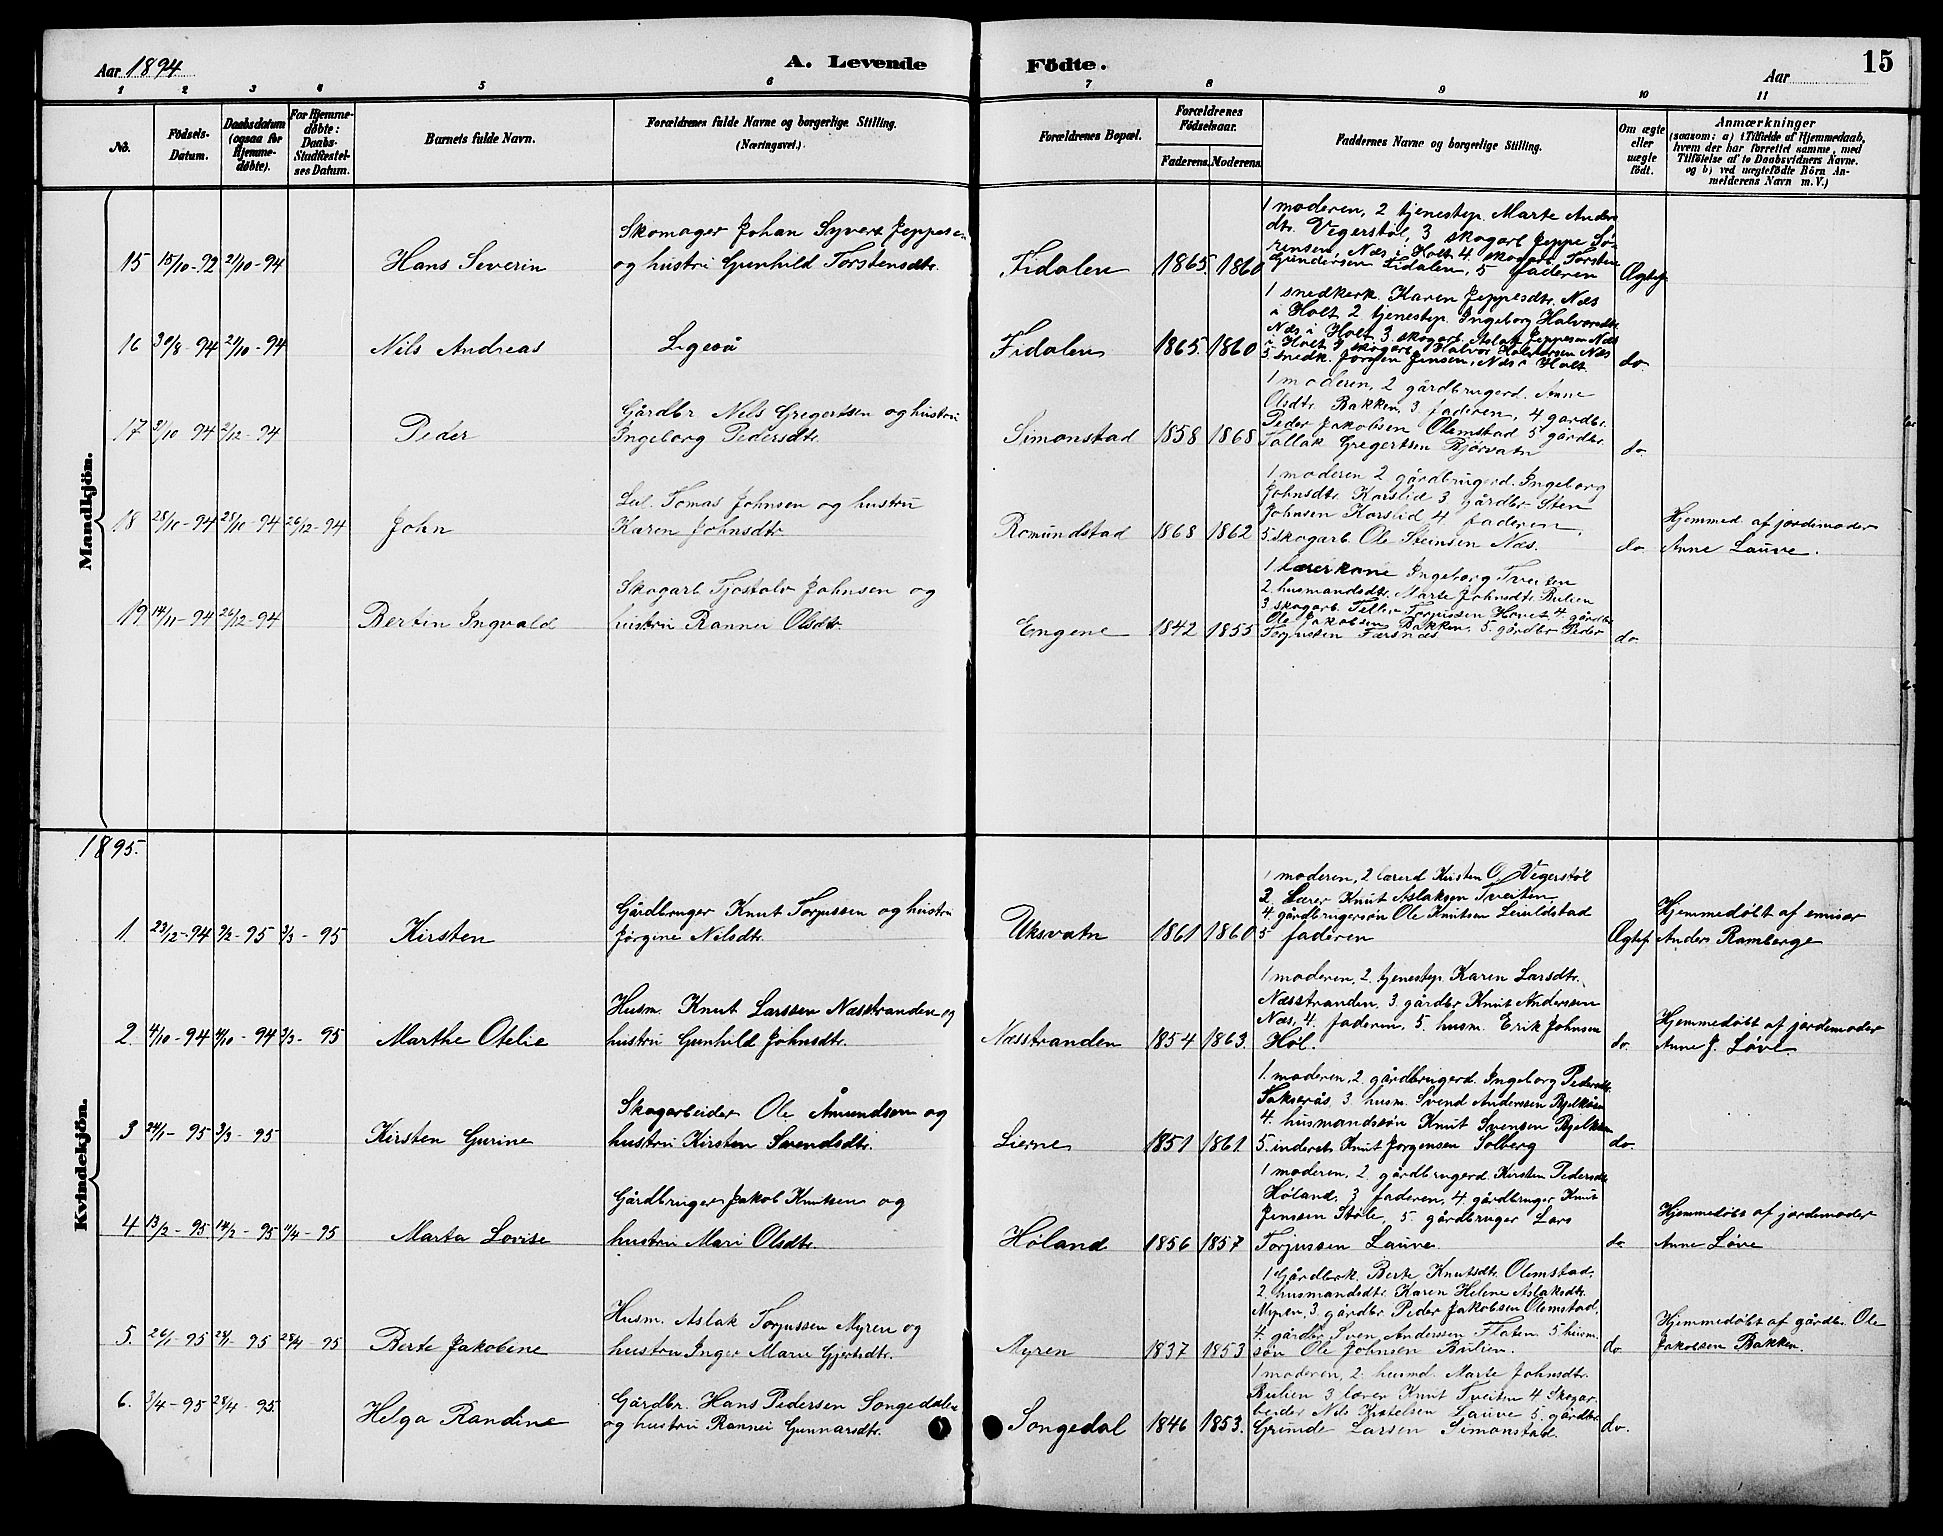 Aar 1894
A. Levende
Födte.
Aar
15
1 2 3 4 5 6 7 8 9 10 11
No.
Födsels-
Datum.
Daabsdatum
(ogsaa for
Hjemme-
døbte).
For Hjemme-
døbte:
Daabs-
Stadfæstel-
ses Datum.
Barnets fulde Navn.
Forældrenes fulde Navne og borgerlige Stilling.
(Næringsvei.)
Forældrenes Bopæl.
Forældrenes
Fødselsaar.
Faderens. Moderens.
Faddernes Navne og borgerlige Stilling.
Om ægte
eller
uægte
født.
Anmærkninger
(saasom: a) i Tilfælde af Hjemmedaab,
hvem der har forrettet samme, med
Tilføielse af to Daabsvidners Navne.
og b) ved uægtefødte Börn An-
melderens Navn m. V.)
Mandkjön.
15 15/10-92 21/10-94
Hans Severin
Skomager Johan Syvert Jeppesen
og hustru Gunhild Torstensdtr.
Fidalen 1865. 1860
1 moderen, 2 tjenestep. Marte Anders
dtr. Vegerstøl, 3 skogarb Jeppe Sö-
rensen, Næs i Holt 4. skogarb. Torsten
Gundersen Fidalen, 5 faderen
Ægtef.
16 30/8-94 21/10-94
Nils Andreas
Ligeså
Fidalen 1865. 1860
1 snedkerk. Karen Jeppesdtr. Næs
i Holt 2 tjenestep. Ingeborg Halvorsdtr.
Næs i Holt 3 skogarb. Aslak Jeppesen Næs
i Holt 4 skogarb. Halvor Halvorsen Næs
5 snedk. Jørgen Jensen, Næs i Holt.
do.
17 31/10 94 2/12-94
Peder
Gårdbr. Nils Gregertsen og hustru
Ingeborg Pedersdtr.
Simonstad 1858 1868
1 moderen, 2 gårdbrugerd. Anne
Olsdtr. Bakken, 3 faderen, 4 gårdbr.
Peder Jakobsen Olemstad 5 gårdbr.
Tallak Gregertsen Bjørvatn
do.
18 28/10-94 28/10-94 26/12-94
John
Lul. Tomas Johnsen og hustru
Karen Johnsdtr.
Romundstad 1868 1862
1 moderen 2 gårdbrugerd. Ingeborg
Johnsdtr. Korslid 3 gårdbr. Sten
Johnsen Korslid 4. faderen,
5. skogarb. Ole Steinsen Næs.
do
Hjemmed. af jordemoder
Anne Lauve.
19 14/11-94 26/12-94
Bertin Ingvald
Skogarb Tjostolv Johnsen og
hustru Rannei Olsdtr.
Engene 1842 1855
1 lærerkone Ingeborg Tveiten
2. husmandsdtr. Marte Johnsdtr. Bulien
3 skogarb. Tellev Torjussen Hovet 4. gårdbr
Ole Jakobsen Bakken, 5. gårdbr Peder
Torjussen Færsnæs
do
1895.
Kvindekjön.
1. 23/12-94 3/2-95 3/3-95
Kirsten
Gårdbruger Knut Torjussen og hustru
Jørgine Nilsdtr.
Uksvatn 1861 1860
1 moderen, 2 lærerd Kirsten O. Vegerstøl
3 Lærer Knut Aslaksen Tveiten
4. gårdbrugersøn Ole Knutsen Leuldstad
5 faderen
Ægtef.
Hjemmedøbt af emisær
Anders Ramberge
2 4/10-94 4/10-94 3/3-95
Marthe Otelie
Husm. Knut Larssen Næsstranden og
hustru Gunhild Johnsdtr.
Næsstranden 1854 1863.
1 moderen, 2. tjenestep. Karen Larsdtr.
Næsstranden, 3 gårdbr Knut Anderssen
Næs, 4. faderen, 5. husm. Erik Johnsen
Høl.
do.
Hjemmedøbt af jordemoder
Anne J. Løve.
3 24/1-95 3/3-95
Kirsten Gurine
Skogarbeider Ole Åmundsen og
hustru Kirsten Svendsdtr.
Lierne 1851 1861
1. moderen, 2. gårdbrugerd. Ingeborg Pedersdtr.
Sakserås 3 husm. Svend Anderssen Bjelkåsen
4. husmandssøn Knut Svensen Bjelkåsen
5. inderst Knut Jørgensen Solberg
do.
4 13/2-95 14/2-95 11/4-95
Marta Lovise
Gårdbruger Jakob Knutsen og
hustru Mari Olsdtr.
Høland 1856 1857
1 moderen, 2 gårdbrugerd Kirsten Pedersdtr.
Høland, 3 faderen, 4 gårdbruger Knut
Jenssen Støle, 5. gårdbruger Lars
Torjussen Lauve.
do
Hjemmedøbt af jordemoder
Anne Løve
5. 26/1-95 28/1-95 28/4-95
Berte Jakobine
Husm. Aslak Torjussen Myren og
hustru Inger Marie Gjertsdtr.
Myren 1837 1853
1 Gårdbrk. Berte Knutsdtr. Olemstad,
2. husmandsdtr. Karen Helene Aslaksdtr.
Myren, 3 gårdbr Peder Jakobsen Olemstad,
4 gårdbr Sven Anderssen Flaten 5 husm.
søn Ole Johnsen Bulien.
do.
Hjemmedøbt af gårdbr. Ole
Jakobsen Bakken.
6. 3/4-95 28/4-95.
Helga Randine
Gårdbr. Hans Pedersen Songedalen
og hustru Rannei Gunnarsdtr.
Songedal 1846 1853.
1 moderen, 2. husmd. Marte Johnsdtr.
Bulien 3 lærer Knut Tveiten 4 Skogar-
beider Nils Kittelsen Lauve 5. gårdbr
Grunde Larsen Simonstad.
do.